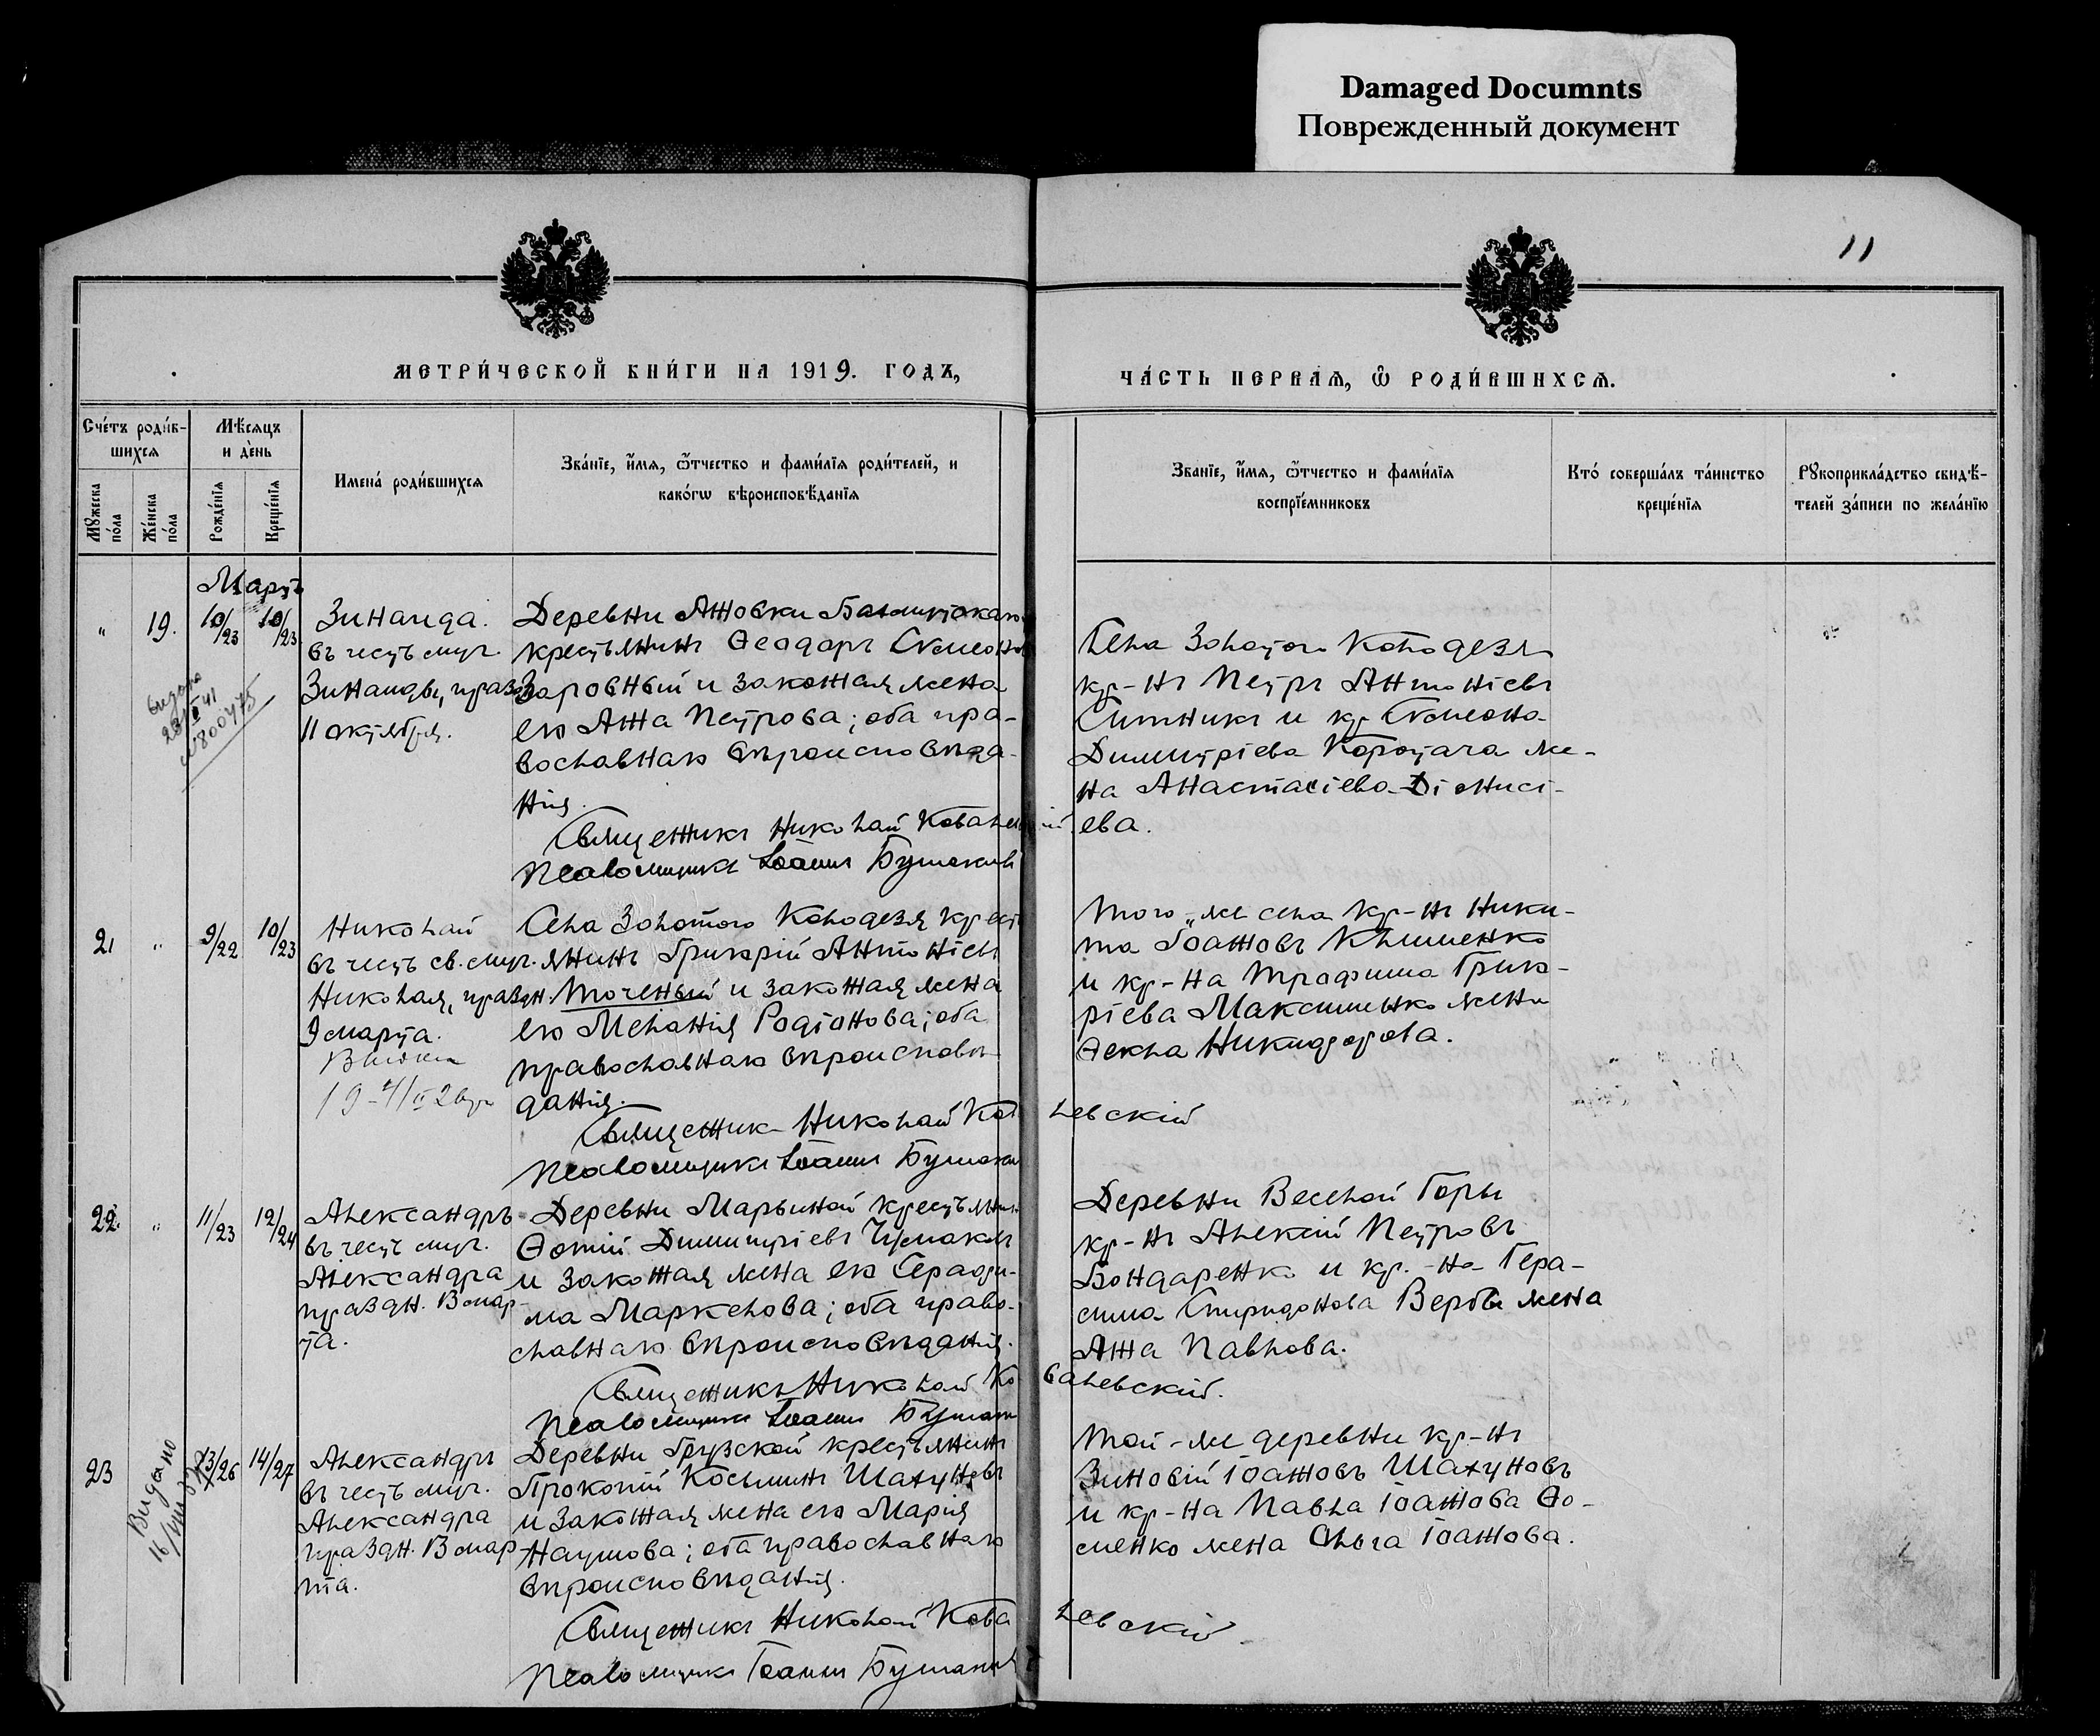 Damaged Documnts
Поврежденный документ
11
МЕТРИ́ЧЕСКОЙ КНИ́ГИ НА 1919. ГОДЪ,
ЧА́СТЬ ПЕ́РВАѦ, Ѽ РОДИ́ВШИХСѦ.
Сче́тъ роди́в-
шихсѧ
Мꙋ́жеска по́ла
Же́нска по́ла
Мѣ́сѧцъ
и де́нь
Рожде́нїѧ
Креще́нїѧ
Имена́ роди́вшихсѧ
Зва́нїе, и́мѧ, ѻ҆́тчество и фами́лїѧ роди́телей, и
како́гѡ вѣроисповѣ́данїѧ
Зва́нїе, и́мѧ, ѻ҆́тчество и фами́лїѧ
воспрїе́мниковъ
Кто́ соверша́лъ та́инство
креще́нїѧ
Рꙋкоприкла́дство свидѣ́-
телей за́писи по жела́нїю
Мартъ
" 19. 10/23 10/23
Зинаида.
въ честь муч.
Зинаиды, празд.
11 октября.
Деревни Анновки
крестьянинъ Ѳеодоръ Симеоновъ
Заровный и законная жена
его Анна Петрова; оба пра-
вославнаго вѣроисповѣда-
нія.
Священникъ Николай Ковалевскій
Псаломщикъ Іоаннъ
Села Золотого Колодезя
кр-нъ Петръ Антоніевъ
Ситникъ и кр. Симеона
Димитріева Коротача же-
на Анастасіева Діонисі-
ева.
видано
21 " 9/22 10/23
Николай
въ честь св. муч.
Николая, праздн.
9 марта.
Села Золотого Колодезя крест
янинъ Григорій Антоніевъ
Точеный и законная жена
его Меланія Родіонова; оба
православнаго вѣроисповѣ-
данія.
Священникъ Николай Ковалевскій
Псаломщикъ Іоаннъ
Того-же села кр-нъ Ники-
та Іоанновъ Клименко
и кр-на Трофима Григо-
ріева Максименко жена
Ѳекла Никифорова.
22. " 11/23 12/24
Александръ
въ честь муч.
Александра
праздн. 13 мар-
та.
Деревни Марьиной крестьянинъ
Ѳотій Димитріевъ Чумакъ
и законная жена его Серафи-
ма Маркелова; оба право-
славнаго вѣроисповѣданія.
Священникъ Николай Ковалевскій.
Псаломщикъ Іоаннъ
Деревни Веселой Горы
кр-нъ Алексій Петровъ
Бондаренко и кр.-на Гера-
сима Спиридонова Вербы жена
Анна Павлова.
23 13/26 14/27
Видано
Александръ
въ честь муч.
Александра
праздн. 13 мар-
та.
Деревни Грузской крестьянинъ
Прокопій Косьминъ Шахуновъ
и законная жена его Марія
Наумова; оба православнаго
вѣроисповѣданія.
Священникъ Николай Ковалевскій
Псаломщикъ Іоаннъ
Той-же деревни кр-нъ
Зиновій Іоанновъ Шахуновъ
и кр-на Павла Іоаннова Ѳо-
менко жена Ольга Іоаннова.